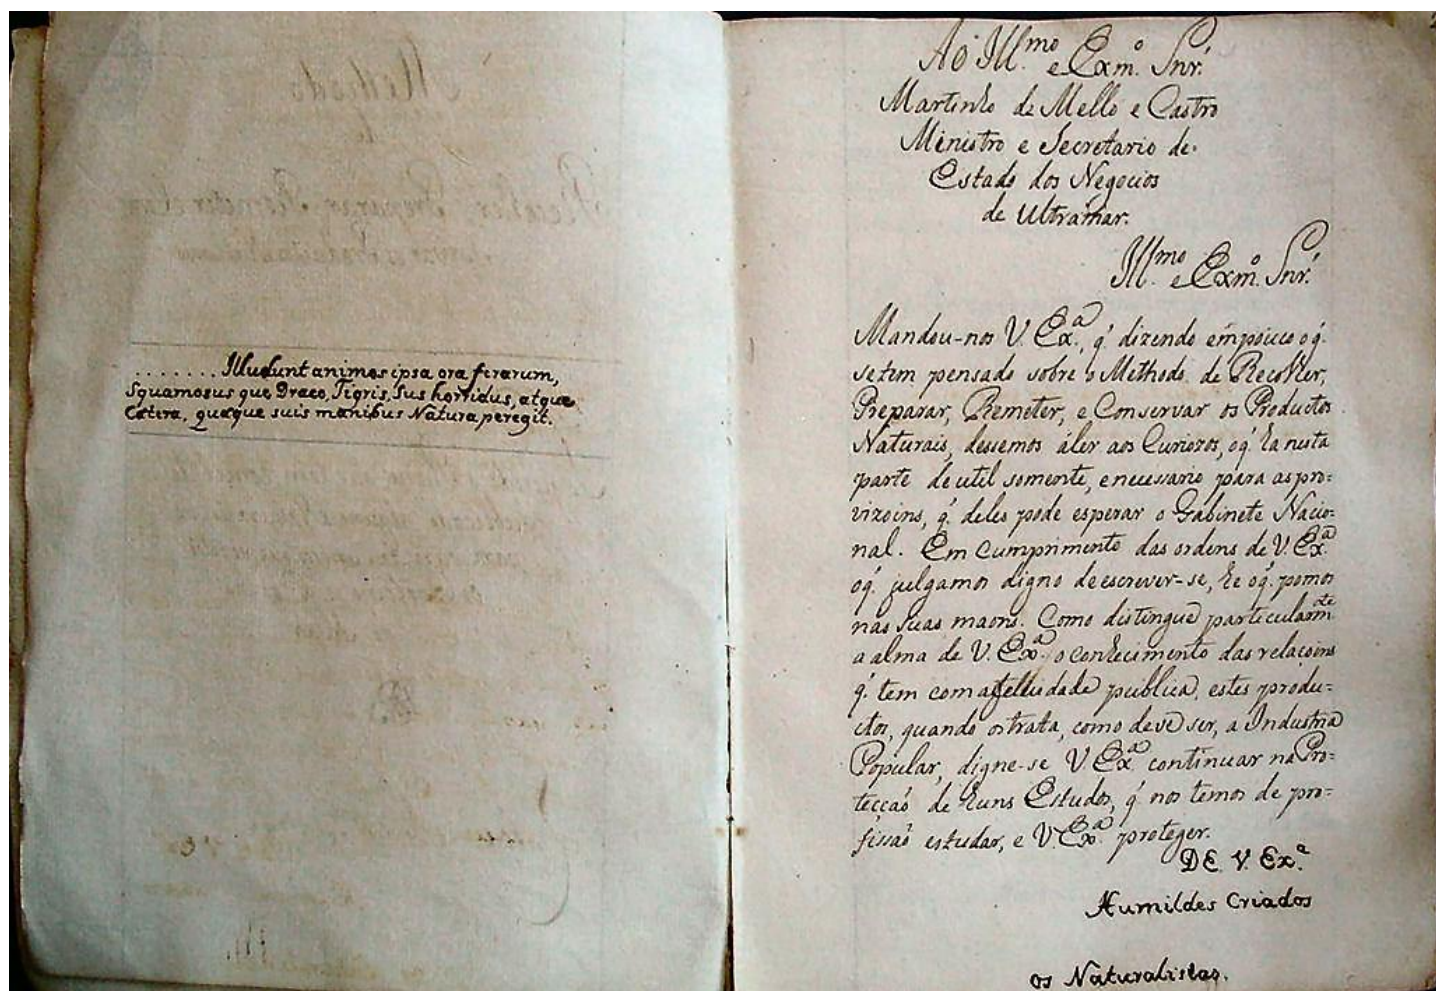 ........Illudunt animos ipsa ora ferarum,
Squamosus que Draco, Tigris, Sus horridus, atque
Cetera, quæque suis manibus Natura peregit.
Ao Ill.mo e Exm.o Snr.
Martinho de Mello e Castro
Ministro e Secretario de
Estado dos Negocios
de Ultramar.
Ill.mo e Exm.o Snr.
Mandou-nos V. Ex.a, q. dizendo em pouco o q.
se tem pensado sobre o Methodo de Recolher,
Preparar, Remeter, e Conservar os Productos
Naturais, dessemos áler aos Curiozos, oq. ha nesta
parte de util somente, e necessario para as pro=
vizoins, q. deles pode esperar o Gabinete Nacio=
nal. Em cumprimento das ordens de V. Ex.a
oq. julgamos digno de escrever-se, he oq. pomos
nas suas maons. Como distingue particularm.te
a alma de V. Ex.a o conhecimento das relacoins
q. tem com a felicidade publica, estes produ=
ctos, quando os trata, como deve ser, a Industria
Popular, digne-se V. Ex.a continuar na Pro=
tecçaõ de huns Estudos, q. nos temos de pro=
fissaõ estudar, e V. Ex.a proteger.
DE V. Ex.a
Humildes Criados
os Naturalistas.